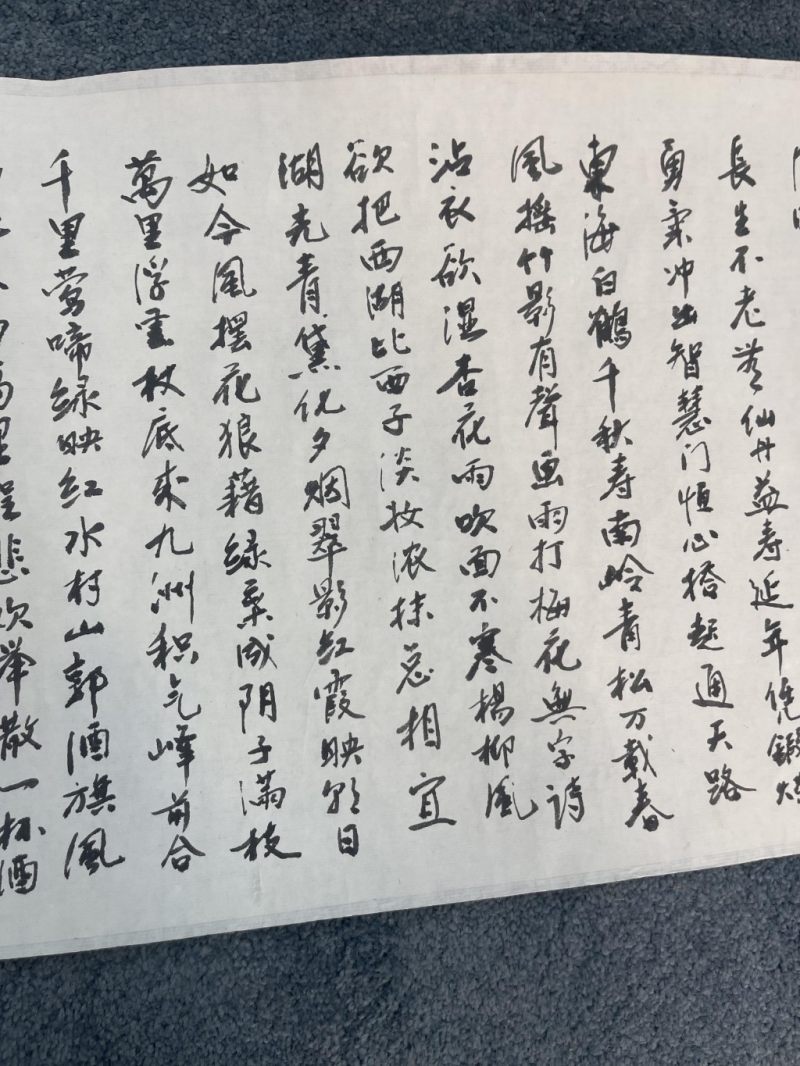 長生不老着仙丹益寿延年凭鍛炼
勇气冲出智慧门恒心搭起通天路
東海白鶴千秋寿南岭青松万載春
風摇竹影有聲画雨打梅花無字詩
沾衣欲湿杏花雨吹面不寒楊柳風
欲把西湖比西子淡妆浓抹总相宜
湖光青黛化夕烟翠影红霞映朝日
如今風摆花狼藉绿葉成阴子满枝
萬里浮雲杖底来九洲积气峰前合
千里莺啼绿映红水村山郭酒旗風
萬里呈悲欢举散一杯酒